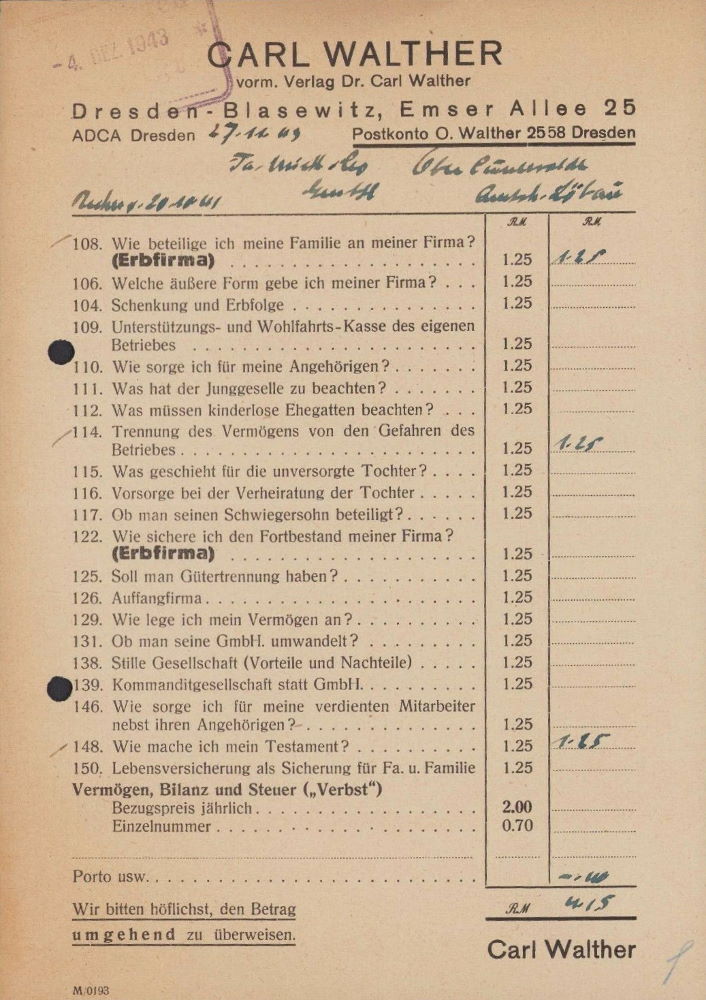 - 4. DEZ. 1943
CARL WALTHER
vorm. Verlag Dr. Carl Walther
Dresden-Blasewitz, Emser Allee 25
ADCA Dresden
Postkonto O. Walther 2558 Dresden
GmbH
RM RM
108. Wie beteilige ich meine Familie an meiner Firma?
(Erbfirma) . . . . . . . . . . . . . . . . . . . . 1.25 1.25
106. Welche äußere Form gebe ich meiner Firma? . . . 1.25
104. Schenkung und Erbfolge . . . . . . . . . . . . . . . 1.25
109. Unterstützungs- und Wohlfahrts-Kasse des eigenen
Betriebes . . . . . . . . . . . . . . . . . . . . . 1.25
110. Wie sorge ich für meine Angehörigen? . . . . . . . 1.25
111. Was hat der Junggeselle zu beachten? . . . . . . . 1.25
112. Was müssen kinderlose Ehegatten beachten? . . . 1.25
114. Trennung des Vermögens von den Gefahren des
Betriebes . . . . . . . . . . . . . . . . . . . . . . 1.25 1.25
115. Was geschieht für die unversorgte Tochter? . . . . 1.25
116. Vorsorge bei der Verheiratung der Tochter . . . . . 1.25
117. Ob man seinen Schwiegersohn beteiligt? . . . . . . 1.25
122. Wie sichere ich den Fortbestand meiner Firma?
(Erbfirma) . . . . . . . . . . . . . . . . . . . . 1.25
125. Soll man Gütertrennung haben? . . . . . . . . . . 1.25
126. Auffangfirma . . . . . . . . . . . . . . . . . . . . 1.25
129. Wie lege ich mein Vermögen an? . . . . . . . . . . 1.25
131. Ob man seine GmbH. umwandelt? . . . . . . . . . 1.25
138. Stille Gesellschaft (Vorteile und Nachteile) . . . . . 1.25
139. Kommanditgesellschaft statt GmbH. . . . . . . . . . 1.25
146. Wie sorge ich für meine verdienten Mitarbeiter
nebst ihren Angehörigen? . . . . . . . . . . . . . 1.25
148. Wie mache ich mein Testament? . . . . . . . . . . 1.25 1.25
150. Lebensversicherung als Sicherung für Fa. u. Familie 1.25
Vermögen, Bilanz und Steuer („Verbst“)
Bezugspreis jährlich . . . . . . . . . . . . . . . . . 2.00
Einzelnummer . . . . . . . . . . . . . . . . . . . . 0.70
Porto usw. . . . . . . . . . . . . . . . . . . . . . . . . -.40
Wir bitten höflichst, den Betrag
RM 4.15
umgehend zu überweisen.
Carl Walther
M/0193